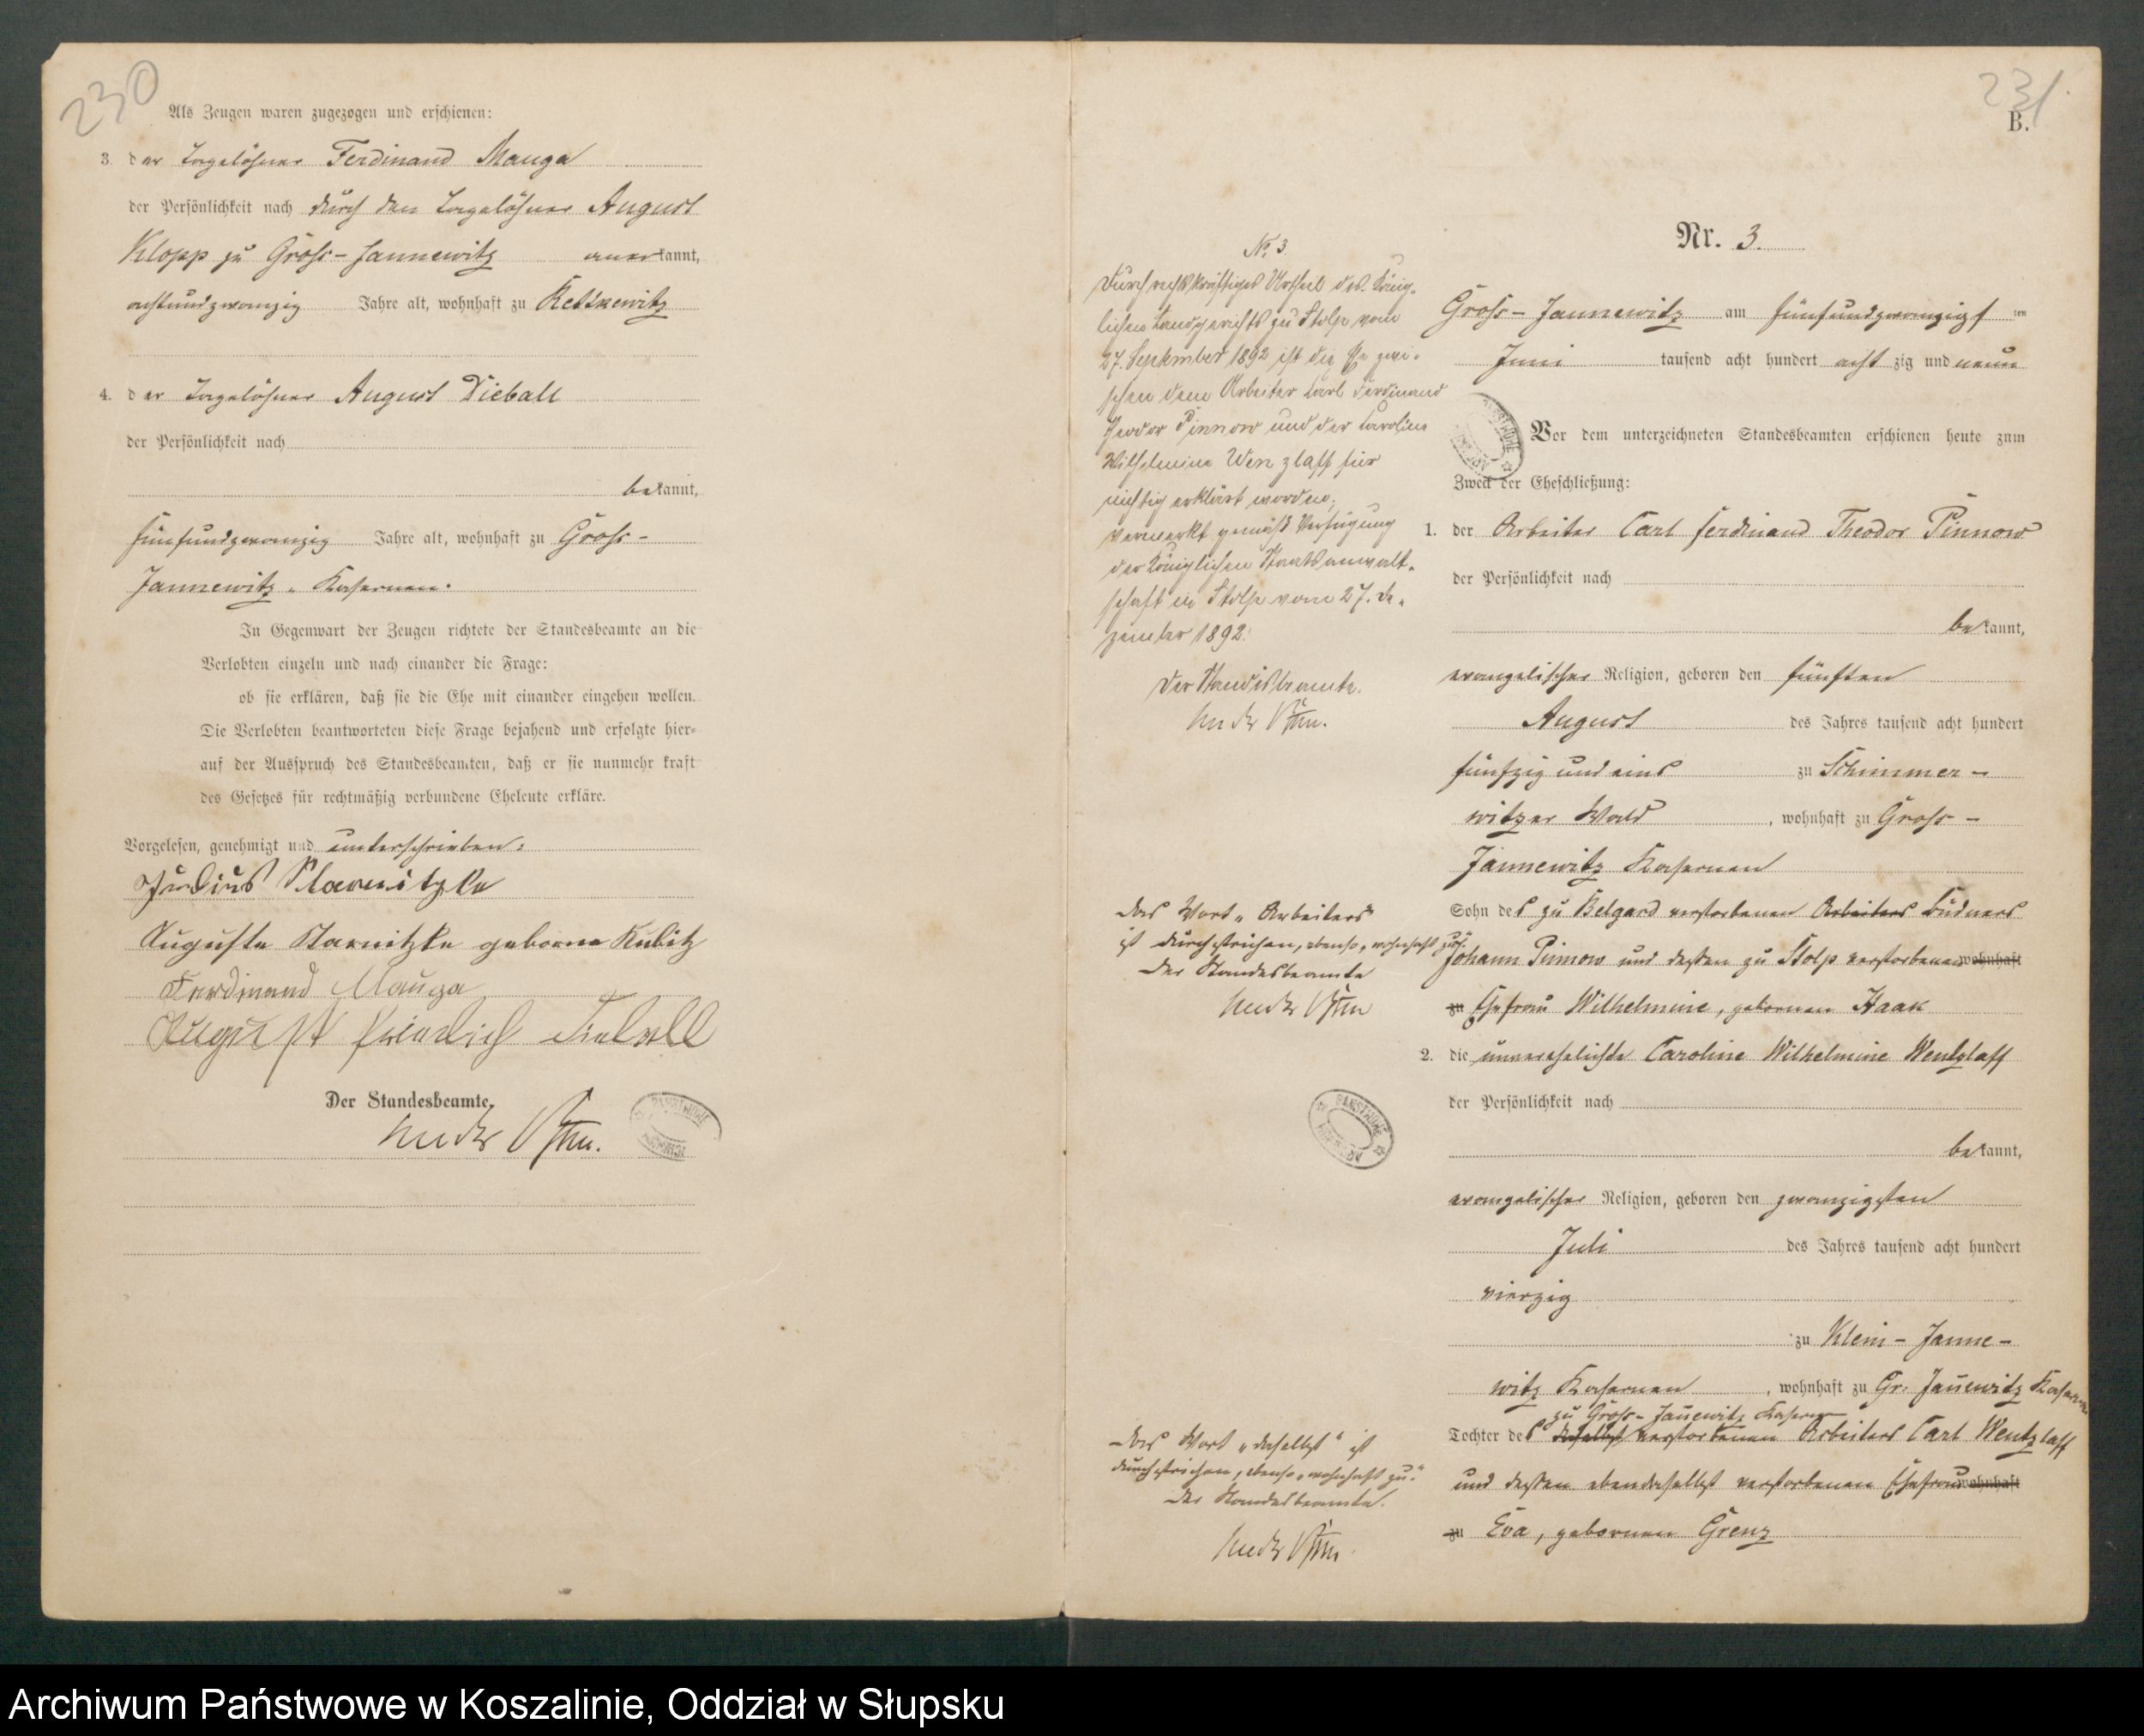 230
Als Zeugen waren zugezogen und erschienen:
3. der Tagelöhner Ferdinand Mauga
der Persönlichkeit nach durch den Tagelöhner August
Klopp zu Gross-Jannewitz anerkannt,
achtundzwanzig Jahre alt, wohnhaft zu Rettkewitz
4. der Tagelöhner August Dieball
der Persönlichkeit nach
bekannt,
fünfundzwanzig Jahre alt, wohnhaft zu Gross-
Jannewitz Kasernen.
In Gegenwart der Zeugen richtete der Standesbeamte an die
Verlobten einzeln und nach einander die Frage:
ob sie erklären, daß sie die Ehe mit einander eingehen wollen.
Die Verlobten beantworteten diese Frage bejahend und erfolgte hier-
auf der Ausspruch des Standesbeamten, daß er sie nunmehr kraft
des Gesetzes für rechtmäßig verbundene Eheleute erkläre.
Vorgelesen, genehmigt und unterschrieben:
Julius Starnitzke
Auguste Starnitzke geborne Kubitz
Ferdinand Mauga
August Dieball
Der Standesbeamte.
231
B.
Nr. 3.
Gross-Jannewitz am fünfundzwanzigsten
Juni tausend acht hundert achtzig und neun
Vor dem unterzeichneten Standesbeamten erschienen heute zum
Zweck der Eheschließung:
1. der Arbeiter Carl Ferdinand Theodor Pinnow
der Persönlichkeit nach
bekannt,
evangelischer Religion, geboren den fünften
August des Jahres tausend acht hundert
fünfzig und eins zu Schimmer-
witzer Wald, wohnhaft zu Gross-
Jannewitz Kasernen
Sohn des zu Belgard verstorbenen Arbeiters Büdners
Johann Pinnow und dessen zu Stolp verstorbenen wohnhaft
zu Ehefrau Wilhelmine, gebornen Haak
2. die unverehelichte Caroline Wilhelmine Wentzlaff
der Persönlichkeit nach
bekannt,
evangelischer Religion, geboren den zwanzigsten
Juli des Jahres tausend acht hundert
vierzig
zu Klein-Janne-
witz Kasernen, wohnhaft zu Gr. Jannewitz Kasernen
zu Gross-Jannewitz Kasernen
Tochter des daselbst verstorbenen Arbeiters Carl Wentzlaff
und dessen ebendaselbst verstorbenen Ehefrau wohnhaft
zu Eva, gebornen Grenz
No 3
Durch rechtskräftiges Urtheil des König-
lichen Landgerichts zu Stolp vom
27. September 1892 ist die Ehe zwi-
schen dem Arbeiter Carl Ferdinand
Theodor Pinnow und der Caroline
Wilhelmine Wenzlaff für
nichtig erklärt worden;
vermerkt gemäß Verfügung
der Königlichen Staatsanwalt-
schaft in Stolp vom 27. De-
zember 1892.
Der Standesbeamte.
Das Wort „Arbeiters"
ist durchstrichen, ebenso „wohnhaft zu".
Der Standesbeamte
Das Wort „daselbst" ist
durchstrichen, ebenso „wohnhaft zu."
Der Standesbeamte.
Archiwum Państwowe w Koszalinie, Oddział w Słupsku